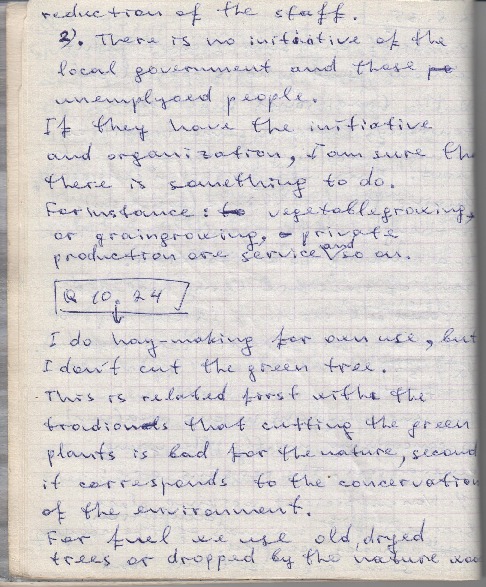 reduction of the staff.
2). There is no initiative of the
local government and these
unemplyoed people.
If they have the initiative
and organization, I am sure th
there is something to do.
For instance: to vegetablegrowing,
or graingrowing, private
production are service and so on.
Q 10. 24
I do hay-making for own use, but
I don't cut the green tree.
This is related first withe the
tradionals that cutting the green
plants is bad for the nature, second
it corresponds to the concervation
of the environment.
For fuel we use old, dryed
trees or dropped by the nature woo